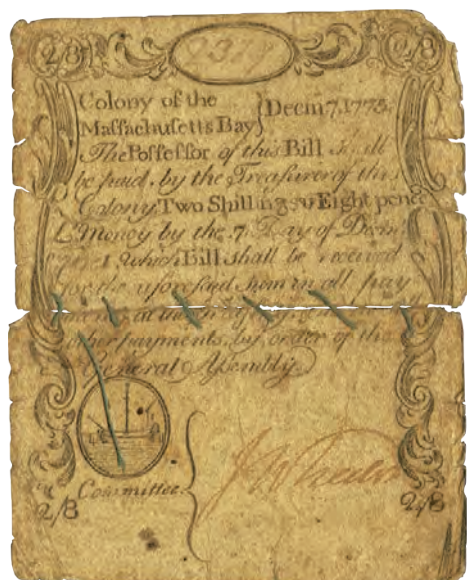 2/8 2/8
Colony of the
Massachusetts Bay } Decem 7, 1775.
The Possessor of this Bill shall
be paid by the Treasurer of this
Colony, Two Shillings & Eight pence
L. Money by the 7. Day of Decm.
which Bill shall be received
for the aforesaid sum in all pay
ments at the
other payments by order of the
General Assembly
Committee.
2/8 2/8